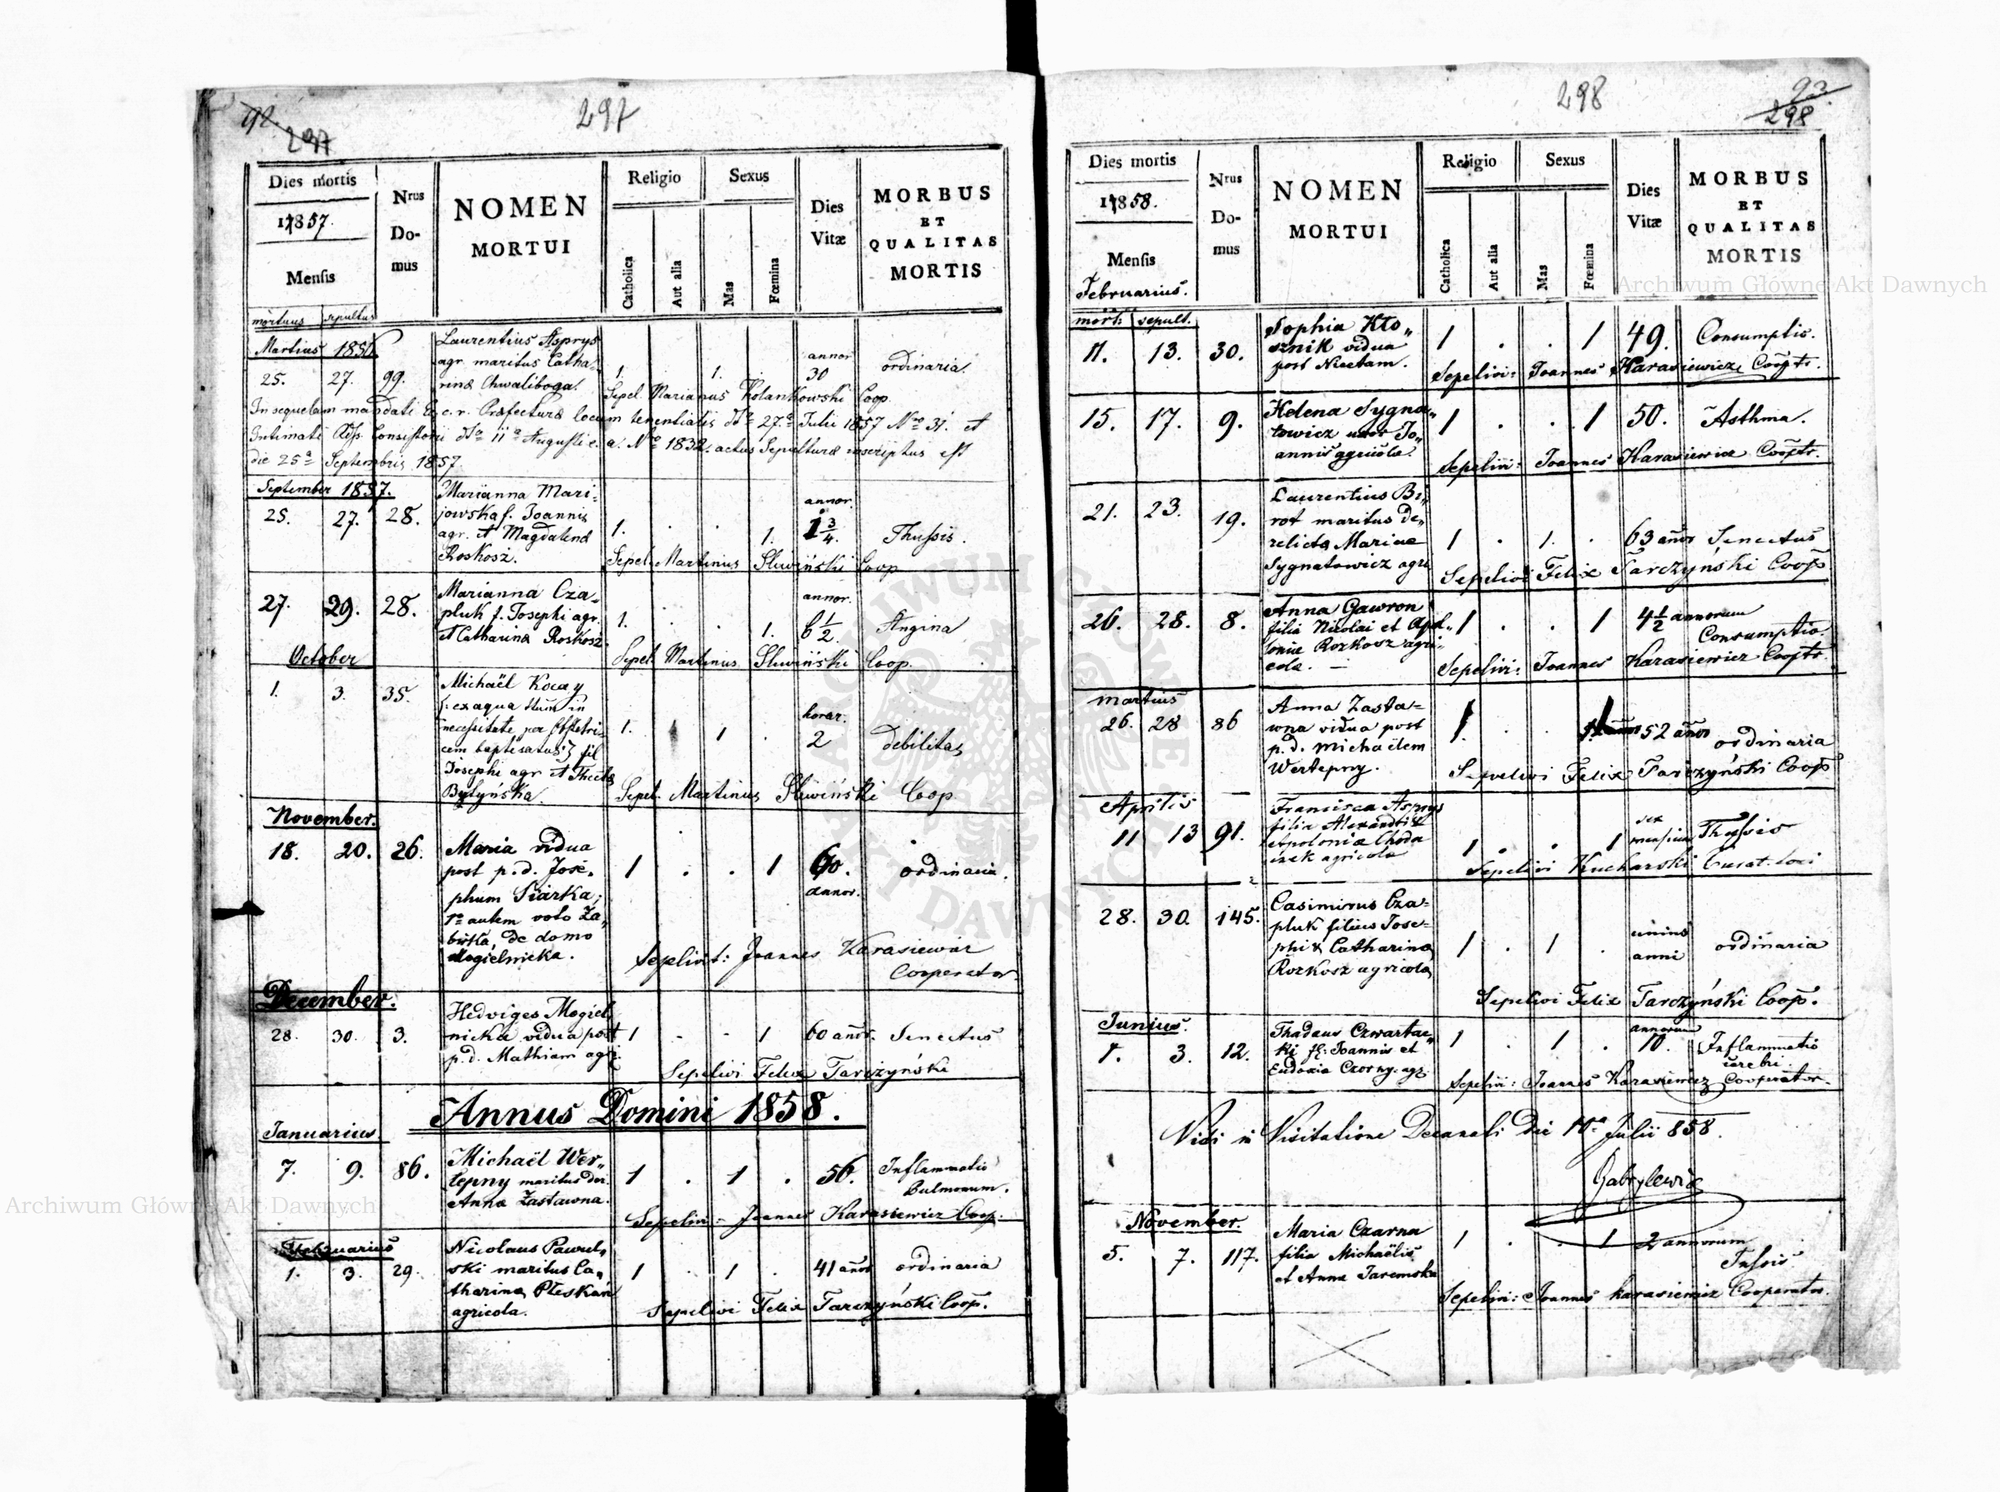 92.
297
297
Dies mortis
Nrus
Do-
mus
NOMEN
MORTUI
Religio
Sexus
Dies
Vitæ
MORBUS
ET
QUALITAS
MORTIS
1857.
Mensis
Catholica
Aut alia
Mas
Fœmina
mortuus sepultus
Martius 1856
25. 27. 99.
Laurentius Asprys
agr. maritus Catha-
rina Chwaliboga.
1. 1.
annor
30
ordinaria
Sepel. Marianus Kolankowski Coop.
In sequelam mandati c. r. Præfectura locum tenentialis dto 27a Julii 1857 Nro 31. et
Intimati Consistorii dto 11a Augusti e. a. Nro 1832. actus Sepultura inscriptus est
die 25a Septembris 1857.
September 1857.
25. 27. 28.
Marianna Mari-
jowska f. Joannis
agr. et Magdalena
Roskosz.
1. . . 1.
annor.
1 3/4.
Thussis.
Sepel. Martinus Sliwiński Coop
27. 29. 28.
Marianna Cza-
pluk f. Josephi agr.
et Catharina Roskosz
1. . . 1.
annor.
6 1/2.
Angina
Sepel. Martinus Sliwiński Coop.
October
1. 3. 35.
Michaël
ex aqua tum in
necessitate per Obstetri-
cem baptisatus fil
Josephi agr et Thecla
Bylyńska.
1. 1 .
horar.
2
debilitas
Sepel. Martinus Sliwiński Coop.
November.
18. 20. 26.
Maria vidua
post p. d. Jose-
phum Siarka,
1o autem voto Za-
bitka, de domo
Mogielnicka.
1 . . 1
60.
annor.
ordinaria.
Sepelivit: Joannes Karasiewicz
Cooperator
December.
28. 30. 3.
Hedviges Mogiel-
nicka vidua post
p. d. Mathiam agr.
1 - - 1
60 annor.
Senectus
Sepelivi Felix Tarczyński
Annus Domini 1858.
Januarius
7. 9. 86.
Michaël Wer-
tepny maritus der.
Anna Zastawna.
1 . 1 .
56.
Inflammatio
Pulmonum.
Sepelivi - Joannes Karasiewicz Coop.
Februarius
1. 3. 29.
Nicolaus Pawul-
ski maritus Ca-
tharina Pleskań
agricola.
1 . 1 .
41 annor
ordinaria
Sepelivi Felix Tarczyński Coop.
298
93.
298
Dies mortis
Nrus
Do-
mus
NOMEN
MORTUI
Religio
Sexus
Dies
Vitæ
MORBUS
ET
QUALITAS
MORTIS
1858.
Mensis
Februarius.
Catholica
Aut alia
Mas
Fœmina
mort. sepult.
11. 13. 30.
Sophia Kło-
sznik vidua
post Nicetam.
1 . . 1
49.
Consumptio.
Sepelivi: Joannes Karasiewicz Cooptr.
15. 17. 9.
Helena Sygna-
towicz uxor Jo-
annis agricola.
1 . . 1
50.
Asthma.
Sepelivi: Joannes Karasiewicz Cooptr.
21. 23. 19.
Laurentius Bi-
rot maritus de-
relicta Mariae
Sygnatowicz agri
1 . 1. .
63 annor
Senectus
Sepelivi Felix Tarczyński Coop
26. 28. 8.
Anna Gawron
filia Nicolai et Apol-
loniæ Rozkosz agri-
cola. -
1 . . 1
4 1/2 annorum
Consumptio.
Sepelivi: Joannes Karasiewicz Cooptr.
Martius
26. 28 86
Anna Zasta-
wna vidua post
p. d. Michaëlem
Wertepny.
1. . .
52 annor
ordinaria
Sepelivi Felix Tarczyński Coop
Aprilis
11 13 91.
Francisca Asprys
filia Alexandri &
Apolonia Choda
czek agricola
1 . . 1
sex
mensium
Thussis
Sepelivi Kucharski Curat. loci
28. 30. 145.
Casimirus Cza-
pluk filius Jose-
phi & Catharina
Rozkosz agricola
1 . 1 .
unius
anni
ordinaria
Sepelivi Felix Tarczyński Coop.
Junius.
1. 3. 12.
Thadaus Czwartac-
ki fil. Joannis et
Eudoxia Czorny. agr.
1 . 1 .
annorum
10.
Inflammatio
cerebri
Sepelivi: Joannes Karasiewicz Cooperator.
Vidi in Visitatione Decanali die 10a Julii 858.
Gabrylewicz
November.
5. 7. 117.
Maria Czarna
filia Michaëlis
et Anna Jaremska
1 . . 1
2 annorum
Tussis.
Sepelivi: Joannes Karasiewicz Cooperator.
Archiwum Główne Akt Dawnych
Archiwum Główne Akt Dawnych
ARCHIWUM GŁÓWNE AKT DAWNYCH